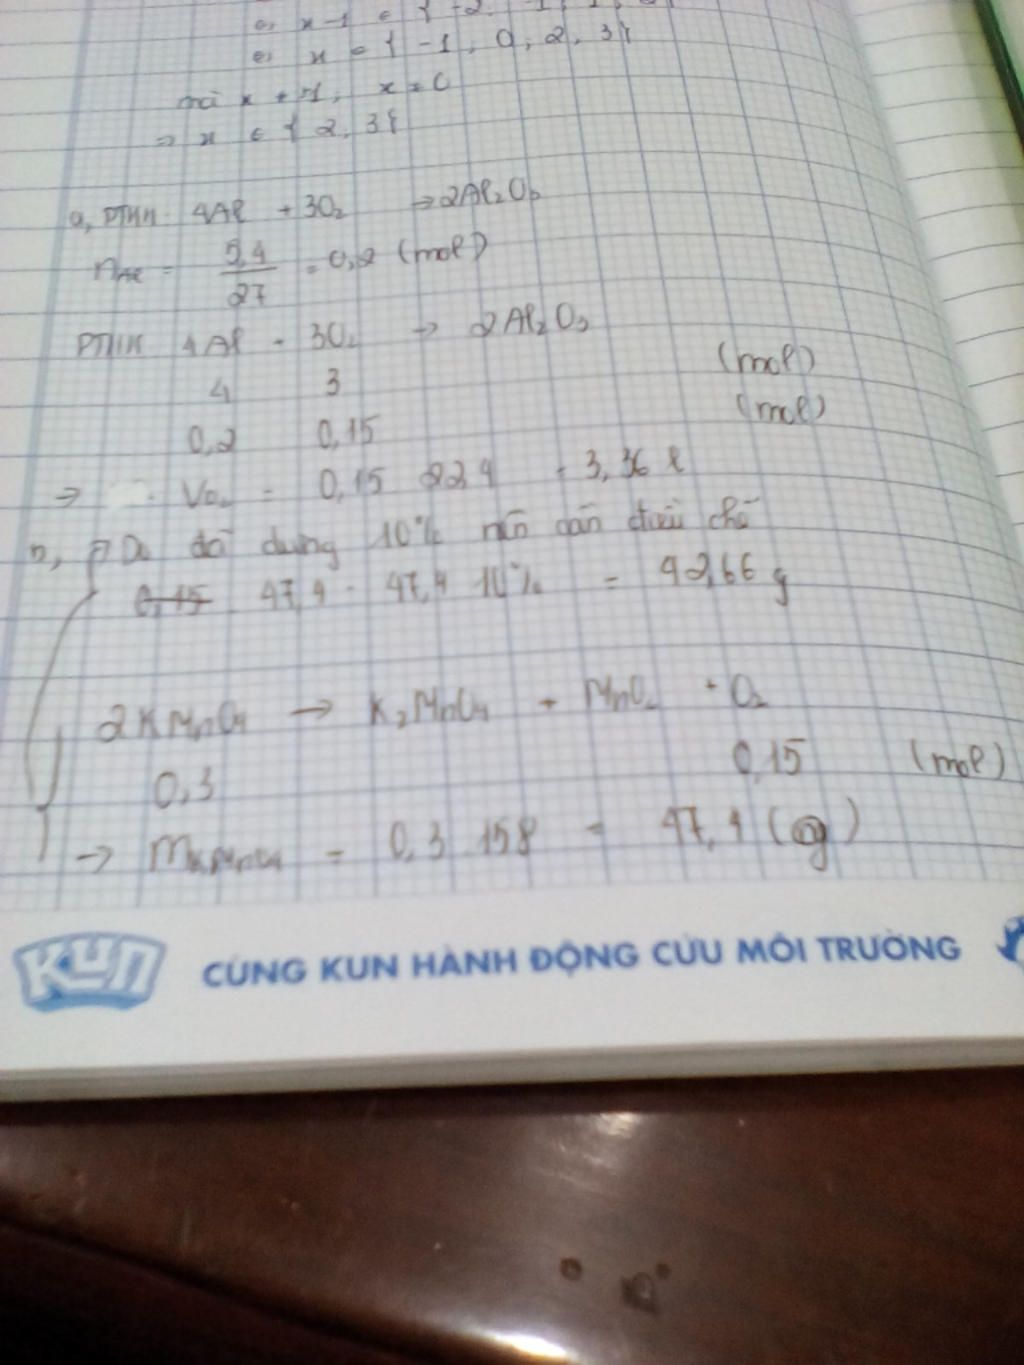 x-1 ∈ { -2, -1, 1,
x = { -1, 0, 2, 3}
mà x ≠ 1, x = 0
=> x ∈ { 2, 3}
a, PTHH 4Al + 3O2 → 2Al2O3
nAl = 5,4/27 = 0,2 (mol)
PTHH 4Al - 3O2 → 2Al2O3
4 3 (mol)
0,2 0,15 (mol)
=> VO2 = 0,15 22,4 = 3,36 l
Do đó dùng 10% nên cần điều chế
0,15 47,4 - 47,4 10% = 42,66 g
2KMnO4 → K2MnO4 + MnO2 + O2
0,3 0,15 (mol)
→ mKMnO4 = 0,3 158 = 47,4 (g)
KUN CÙNG KUN HÀNH ĐỘNG CỨU MÔI TRƯỜNG